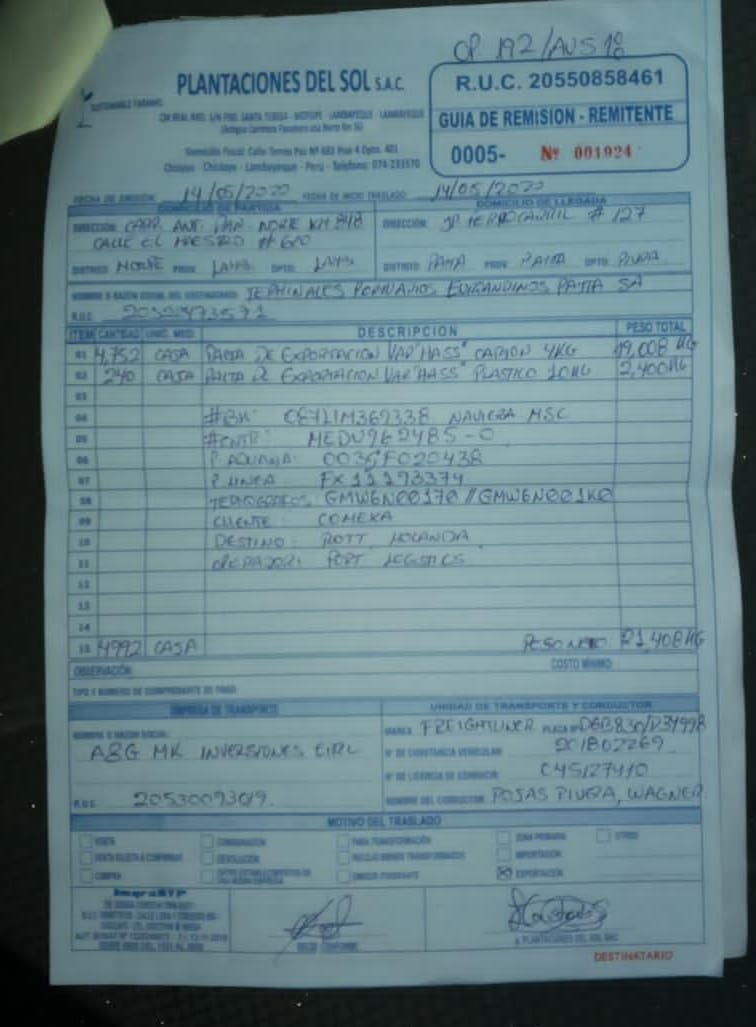 OP 192/AUS 18
PLANTACIONES DEL SOL S.A.C.
SUSTAINABLE FARMING
R.U.C. 20550858461
GUIA DE REMISION - REMITENTE
0005- Nº 001924
Chiclayo - Chiclayo - Lambayeque - Perú - Teléfono: 074-233570
FECHA DE EMISIÓN: 14/05/2022 FECHA DE INICIO TRASLADO 14/05/2022
DOMICILIO DE PARTIDA DOMICILIO DE LLEGADA
DIRECCIÓN: CARR. ANT. PAN. NORTE KM DIRECCIÓN: JR FERROCARRIL # 127
CALLE EL
DISTRITO PROV. LAMB. DPTO. LAMB. DISTRITO PAITA PROV. PAITA DPTO. PIURA
NOMBRE O RAZON SOCIAL DEL DESTINATARIO: TERMINALES PORTUARIOS EUROANDINOS PAITA SA
R.U.C.
ITEM CANTIDAD UNID. MED. DESCRIPCION PESO TOTAL
01 4,752 CAJA PALTA DE EXPORTACION VAR"HASS" CARTON 4KG 19,008 KG
02 240 CAJA PALTA DE EXPORTACION VAR"HASS" PLASTICO 10KG 2,400KG
03
04 #BK: NAVIERA MSC
05 #CNTR: MEDU962485-0
06 P. ADUANA: 003GF020438
07 P. LINEA: FX11293374
08 TERMOGRAFOS: GMW6N00170 // GMW6N001K0
09 CLIENTE: COMEXA
10 DESTINO: ROTT. HOLANDA
11 OPERADOR: PORT LOGISTICS
12
13
14
15 4992 CAJA PESO NETO 21,408KG
OBSERVACIÓN: COSTO MÍNIMO
TIPO Y NUMERO DE COMPROBANTE DE PAGO
EMPRESA DE TRANSPORTE UNIDAD DE TRANSPORTE Y CONDUCTOR
NOMBRE O RAZON SOCIAL MARCA FREIGHTLINER PLACA Nº
A&G MK INVERSIONES EIRL Nº DE CONSTANCIA VEHICULAR: 201802269
Nº DE LICENCIA DE CONDUCIR C45127410
R.U.C. 20530093019. NOMBRE DEL CONDUCTOR ROJAS RIVERA, WAGNER
MOTIVO DEL TRASLADO
VENTA CONSIGNACION PARA TRANSFORMACIÓN ZONA PRIMARIA OTROS
VENTA SUJETA A CONFIRMAR DEVOLUCIÓN RECOJO BIENES TRANSFORMADOS IMPORTACIÓN
COMPRA ENTRE ESTABLECIMIENTOS DE UNA MISMA EMPRESA EMISOR ITINERANTE EXPORTACIÓN
RECIBI CONFORME p. PLANTACIONES DEL SOL SAC
DESTINATARIO